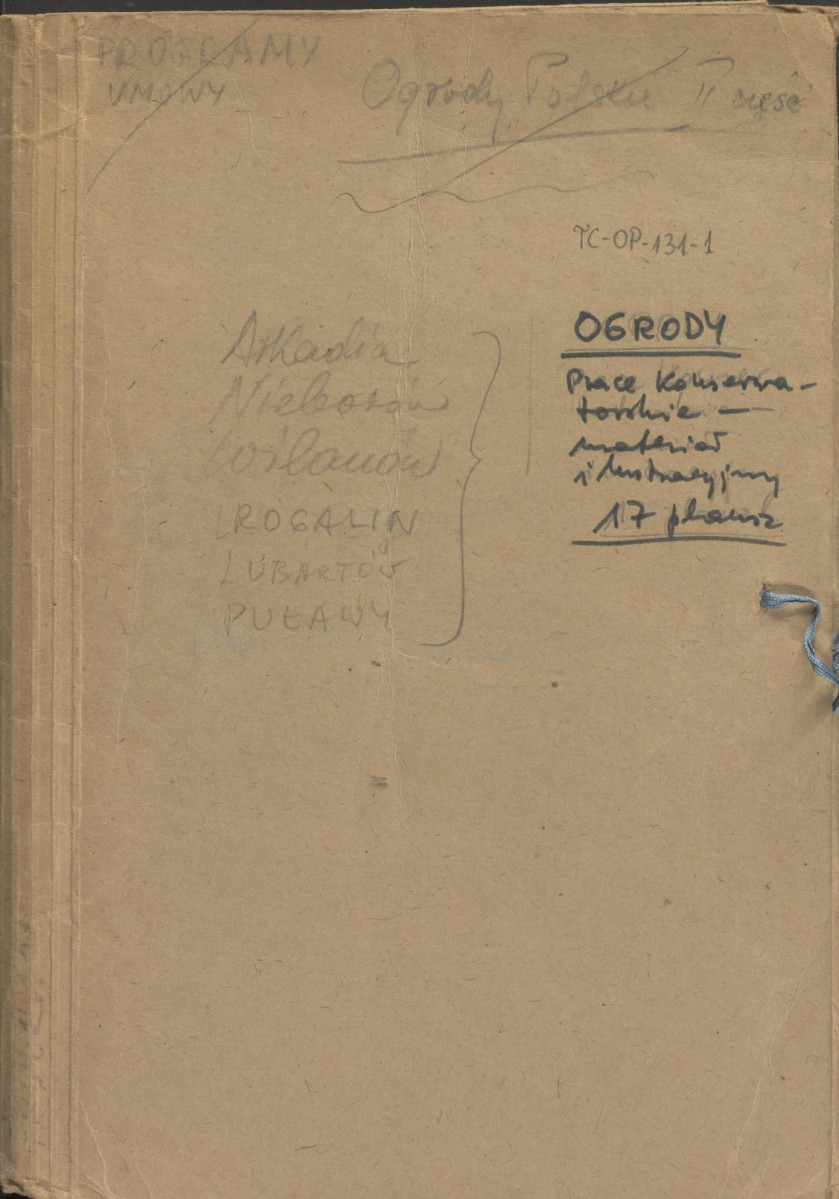 PROGRAMY
UMOWY
Ogrody Polskie II część
TC-OP-131-1
Arkadia
Nieborów
Wilanów
ROGALIN
LUBARTÓW
PUŁAWY
OGRODY
Prace Konserwa-
torskie —
materiał
ilustracyjny
17 plansz